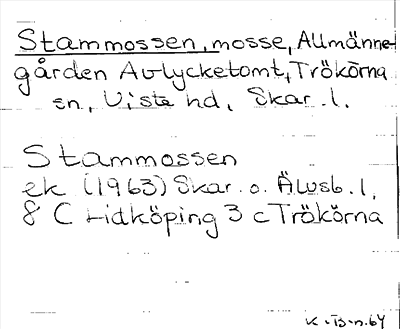 Stammossen, mosse, Allmänne-
gården Avlycketomt, Trökörna
sn., Viste hd, Skar. l.
Stammossen
ek (1963) Skar. o. Älvsb. l,
8 C Lidköping 3 c Trökörna
K-B-n. 64